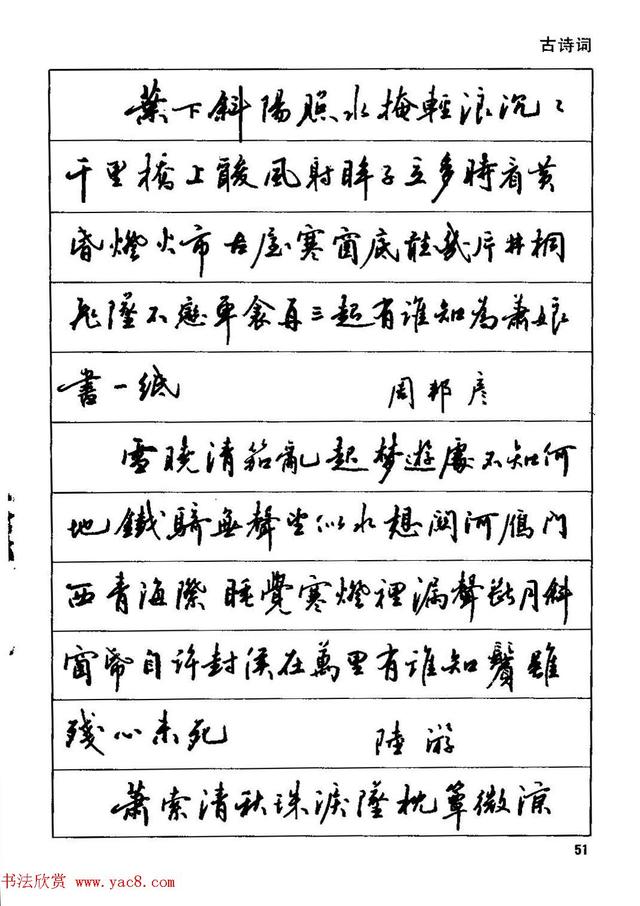 古诗词
葉下斜陽照水捲輕浪沉〻
千里橋上酸風射眸子立多時看黄
昏燈火市古屋寒窗底聽幾片井桐
飛墜不戀單衾再三起有谁知為蕭娘
書一紙
周邦彦
雪曉清笳亂起梦遊處不知何
地鐵騎無聲望似水想関河雁门
西青海際睡覺寒燈裡漏聲断月斜
窗帋自许封侯在萬里有谁知鬢雖
殘心未死
陸游
蕭索清秋珠淚墜枕簟微涼
51
书法欣赏 www.yac8.com